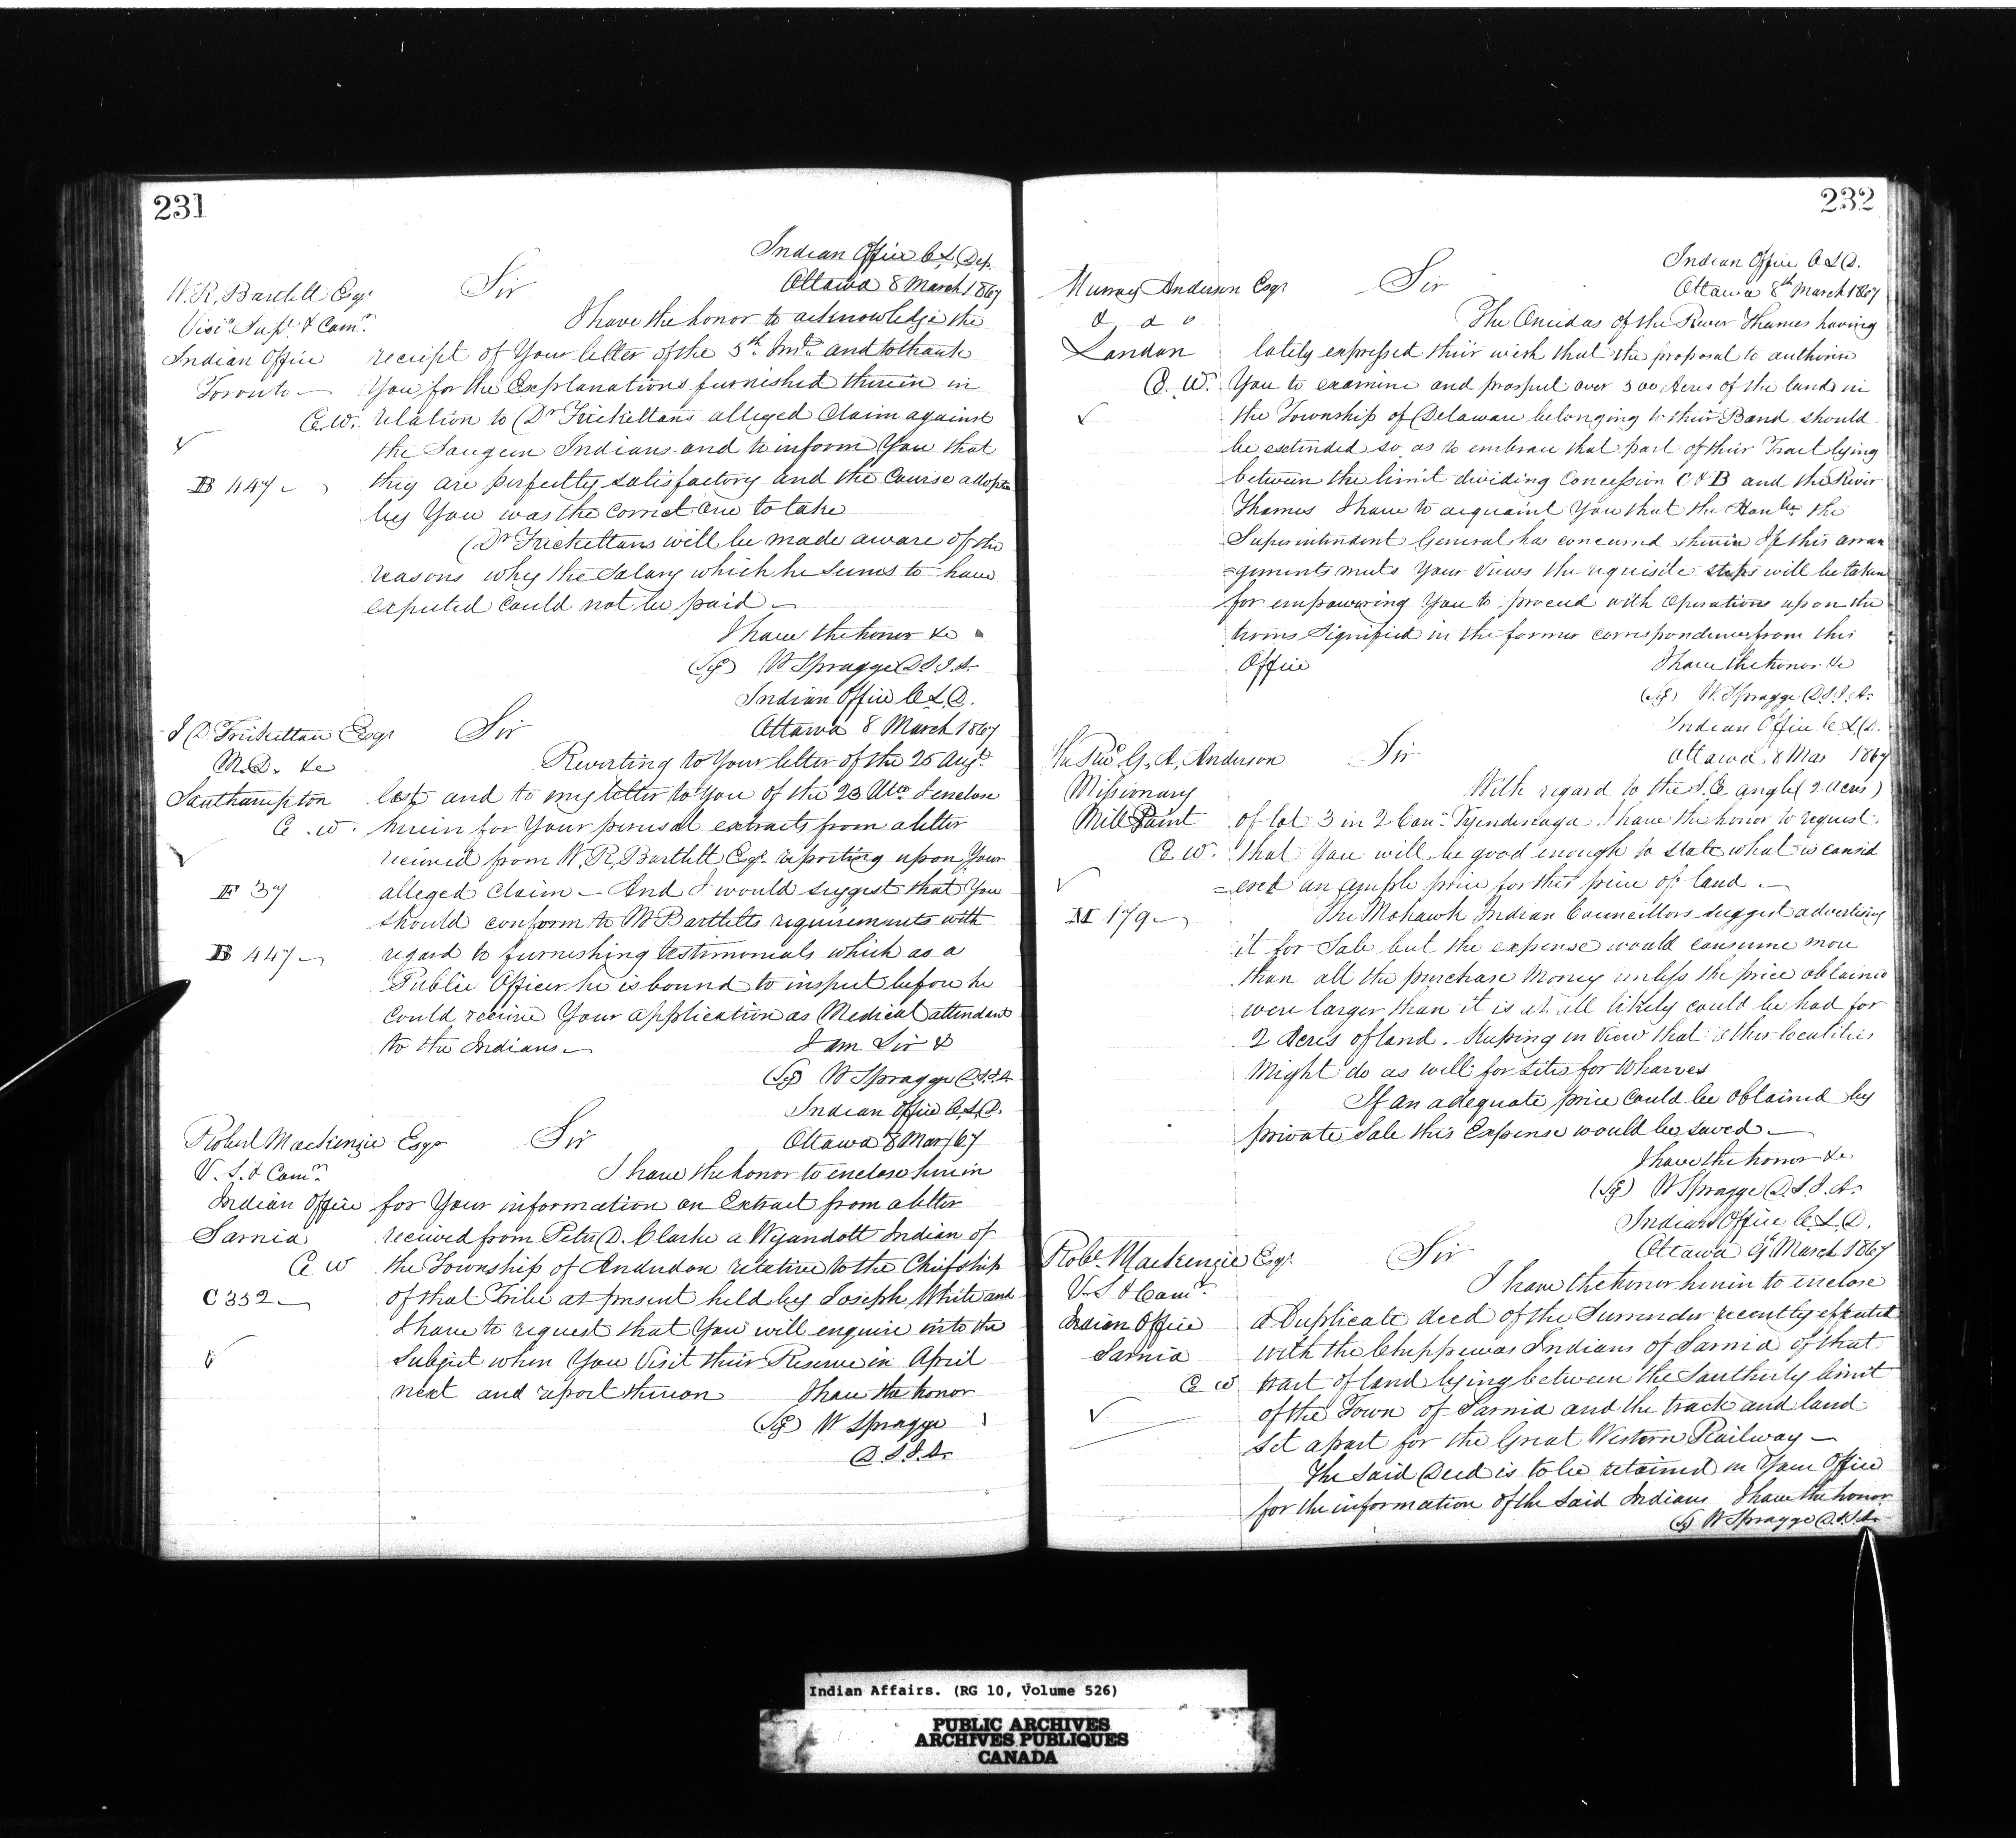 231
Indian Office C.L. Dep.
Ottawa 8 March 1867
W. R. Bartlett Esqr
Visig Supt & Comr
Indian Office
Toronto —
C.W.
B 447 —
Sir
I have the honor to acknowledge the
receipt of Your letter of the 5th Inst. and to thank
You for the Explanations furnished therein in
relation to Dr alleged Claim against
the Saugeen Indians and to inform You that
they are perfectly satisfactory and the Course adopted
by You was the correct one to take
Dr will be made aware of the
reasons why the Salary which he seems to have
expected could not be paid —
I have the honor &c
(Sg) W Spragge D.S.I.A.
Indian Office C.L.D.
Ottawa 8 March 1867
Esqr
M.D. &c
Southampton
C.W.
F 37
B 447 —
Sir
Reverting to Your letter of the 25 Augt
last and to my letter to You of the 23 Ulto I enclose
herein for Your perusal extracts from a letter
received from W. R. Bartlett Esqr reporting upon Your
alleged claim — And I would suggest that You
should conform to Mr Bartletts requirements with
regard to furnishing testimonials which as a
Public Officer he is bound to inspect before he
could receive Your application as Medical attendant
to the Indians —
I am Sir &
(Sg) W Spragge D.S.I.A
Indian Office C.L.D.
Ottawa 8 Mar/67
Robert MacKenzie Esqr
V. S. & Comr
Indian Office
Sarnia
C W
C 352 —
Sir
I have the honor to enclose herein
for Your information an Extract from a letter
received from Peter D. Clarke a Wyandott Indian of
the Township of Anderdon relative to the Chiefship
of that Tribe at present held by Joseph White and
I have to request that You will enquire into the
Subject when You Visit their Reserve in April
next and report thereon
I have the honor
(Sg) W Spragge
D.S.I.A.
232
Indian Office C.L.D.
Ottawa 8th March 1867
Murray Anderson Esqr
London
C.W.
Sir
The Oneidas of the River Thames having
lately expressed their wish that the proposal to authorise
You to examine and prospect over 500 Acres of the land in
the Township of Delaware belonging to their Band should
be extended so as to embrace that part of their Tract lying
between the limit dividing Concession C & B and the River
Thames I have to acquaint You that the Honble the
Superintendent General has concurred therein If this arran
=gements meets Your Views the requisite steps will be taken
for empowering You to proceed with Operations upon the
terms Signified in the former correspondence from this
Office
I have the honor &c
(Sg) W. Spragge D.S.I.A.
Indian Office C.L.D.
Ottawa 8 Mar 1867
The Revd G. A. Anderson
Missionary
Mill Point
C.W.
M 179 —
Sir
With regard to the S.E. angle (2 acres)
of lot 3 in 2 Con. Tyendinaga I have the honor to request
that You will be good enough to state what is consid
=ered an ample price for this piece of land —
The Mohawk Indian Councillors suggest advertising
it for Sale but the expense would consume more
than all the purchase Money unless the price obtained
were larger than it is at all likely could be had for
2 Acres of land. Keeping in View that other localities
Might do as well for sites for Wharves
If an adequate price could be obtained by
private Sale this Expense would be saved —
I have the honor &c
(Sg) W Spragge D.S.I.A.
Indian Office C.L.D.
Ottawa 9th March 1867
Robt MacKenzie Esqr
V. S & Comr
Indian Office
Sarnia
C W
Sir
I have the honor herein to enclose
a Duplicate deed of the Surrender recently effected
with the Chippewas Indians of Sarnia of that
tract of land lying between the Southerly limit
of the Town of Sarnia and the track and land
set apart for the Great Western Railway —
The Said Deed is to be retained in Your Office
for the information of the said Indians I have the honor
(Sg) W Spragge D.S.I.A.
Indian Affairs. (RG 10, Volume 526)
PUBLIC ARCHIVES
ARCHIVES PUBLIQUES
CANADA